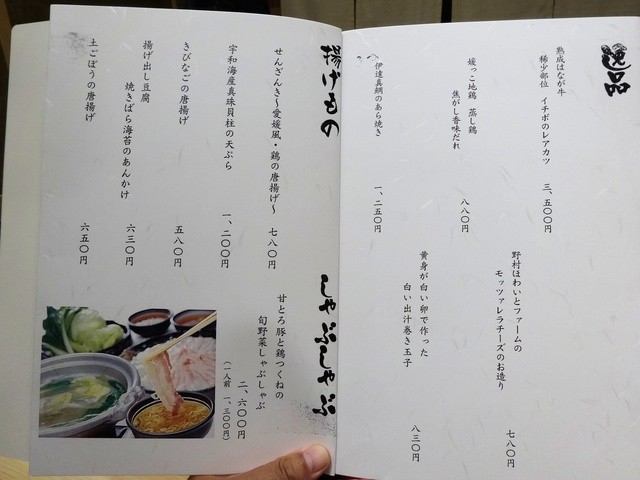 逸品
熟成はなが牛
稀少部位 イチボのレアカツ
三、五〇〇円
媛っこ地鶏 蒸し鶏
焦がし香味だれ
八八〇円
伊達真鯛のあら焼き
一、二五〇円
野村ほわいとファームの
モッツァレラチーズのお造り
七八〇円
黄身が白い卵で作った
白い出汁巻き玉子
八三〇円
揚げもの
せんざんき〜愛媛風・鶏の唐揚げ〜
七八〇円
宇和海産真珠貝柱の天ぷら
一、二〇〇円
きびなごの唐揚げ
五八〇円
揚げ出し豆腐
焼きばら海苔のあんかけ
六三〇円
土ごぼうの唐揚げ
六五〇円
しゃぶしゃぶ
甘とろ豚と鶏つくねの
旬野菜しゃぶしゃぶ
二、六〇〇円
(一人前 一、三〇〇円)